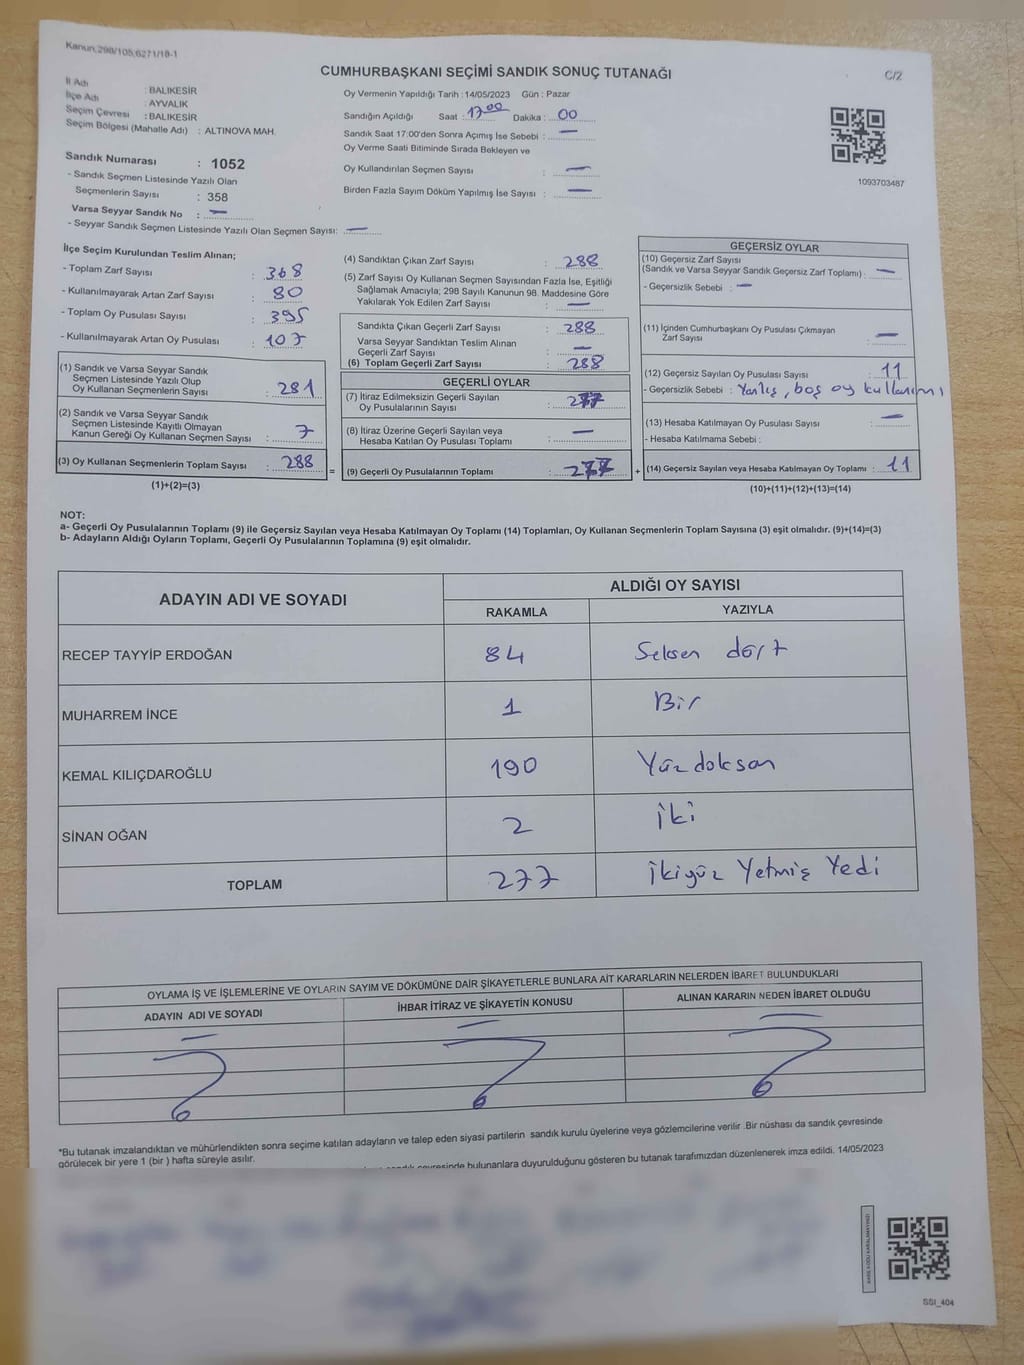 Kanun;298/105;6271/18-1
CUMHURBAŞKANI SEÇİMİ SANDIK SONUÇ TUTANAĞI
C/2
İl Adı : BALIKESİR
İlçe Adı : AYVALIK
Seçim Çevresi : BALIKESİR
Seçim Bölgesi (Mahalle Adı) : ALTINOVA MAH.
Sandık Numarası : 1052
- Sandık Seçmen Listesinde Yazılı Olan
Seçmenlerin Sayısı : 358
Varsa Seyyar Sandık No : —
- Seyyar Sandık Seçmen Listesinde Yazılı Olan Seçmen Sayısı: —
Oy Vermenin Yapıldığı Tarih :14/05/2023 Gün : Pazar
Sandığın Açıldığı Saat : 17.00 Dakika : 00
Sandık Saat 17:00'den Sonra Açımış İse Sebebi : —
Oy Verme Saati Bitiminde Sırada Bekleyen ve
Oy Kullandırılan Seçmen Sayısı : —
Birden Fazla Sayım Döküm Yapılmış İse Sayısı : —
1093703487
İlçe Seçim Kurulundan Teslim Alınan;
- Toplam Zarf Sayısı : 368
- Kullanılmayarak Artan Zarf Sayısı : 80
- Toplam Oy Pusulası Sayısı : 395
- Kullanılmayarak Artan Oy Pusulası : 107
(1) Sandık ve Varsa Seyyar Sandık
Seçmen Listesinde Yazılı Olup
Oy Kullanan Seçmenlerin Sayısı : 281
(2) Sandık ve Varsa Seyyar Sandık
Seçmen Listesinde Kayıtlı Olmayan
Kanun Gereği Oy Kullanan Seçmen Sayısı : 7
(3) Oy Kullanan Seçmenlerin Toplam Sayısı : 288
(1)+(2)=(3)
(4) Sandıktan Çıkan Zarf Sayısı : 288
(5) Zarf Sayısı Oy Kullanan Seçmen Sayısından Fazla İse, Eşitliği
Sağlamak Amacıyla; 298 Sayılı Kanunun 98. Maddesine Göre
Yakılarak Yok Edilen Zarf Sayısı : —
Sandıkta Çıkan Geçerli Zarf Sayısı : 288
Varsa Seyyar Sandıktan Teslim Alınan
Geçerli Zarf Sayısı : —
(6) Toplam Geçerli Zarf Sayısı : 288
GEÇERLİ OYLAR
(7) İtiraz Edilmeksizin Geçerli Sayılan
Oy Pusulalarının Sayısı : 277
(8) İtiraz Üzerine Geçerli Sayılan veya
Hesaba Katılan Oy Pusulası Toplamı : —
= (9) Geçerli Oy Pusulalarının Toplamı : 277 +
GEÇERSİZ OYLAR
(10) Geçersiz Zarf Sayısı
(Sandık ve Varsa Seyyar Sandık Geçersiz Zarf Toplamı) : —
- Geçersizlik Sebebi : —
(11) İçinden Cumhurbaşkanı Oy Pusulası Çıkmayan
Zarf Sayısı : —
(12) Geçersiz Sayılan Oy Pusulası Sayısı : 11
- Geçersizlik Sebebi : Yanlış, boş oy kullanımı
(13) Hesaba Katılmayan Oy Pusulası Sayısı : —
- Hesaba Katılmama Sebebi :
(14) Geçersiz Sayılan veya Hesaba Katılmayan Oy Toplamı : 11
(10)+(11)+(12)+(13)=(14)
NOT:
a- Geçerli Oy Pusulalarının Toplamı (9) ile Geçersiz Sayılan veya Hesaba Katılmayan Oy Toplamı (14) Toplamları, Oy Kullanan Seçmenlerin Toplam Sayısına (3) eşit olmalıdır. (9)+(14)=(3)
b- Adayların Aldığı Oyların Toplamı, Geçerli Oy Pusulalarının Toplamına (9) eşit olmalıdır.
ADAYIN ADI VE SOYADI ALDIĞI OY SAYISI
RAKAMLA YAZIYLA
RECEP TAYYİP ERDOĞAN 84 Seksen dört
MUHARREM İNCE 1 Bir
KEMAL KILIÇDAROĞLU 190 Yüzdoksan
SİNAN OĞAN 2 İki
TOPLAM 277 İkiyüz Yetmiş Yedi
OYLAMA İŞ VE İŞLEMLERİNE VE OYLARIN SAYIM VE DÖKÜMÜNE DAİR ŞİKAYETLERLE BUNLARA AİT KARARLARIN NELERDEN İBARET BULUNDUKLARI
ADAYIN ADI VE SOYADI İHBAR İTİRAZ VE ŞİKAYETİN KONUSU ALINAN KARARIN NEDEN İBARET OLDUĞU
*Bu tutanak imzalandıktan ve mühürlendikten sonra seçime katılan adayların ve talep eden siyasi partilerin sandık kurulu üyelerine veya gözlemcilerine verilir .Bir nüshası da sandık çevresinde
görülecek bir yere 1 (bir ) hafta süreyle asılır.
sandık çevresinde bulunanlara duyurulduğunu gösteren bu tutanak tarafımızdan düzenlenerek imza edildi. 14/05/2023
SSI_404